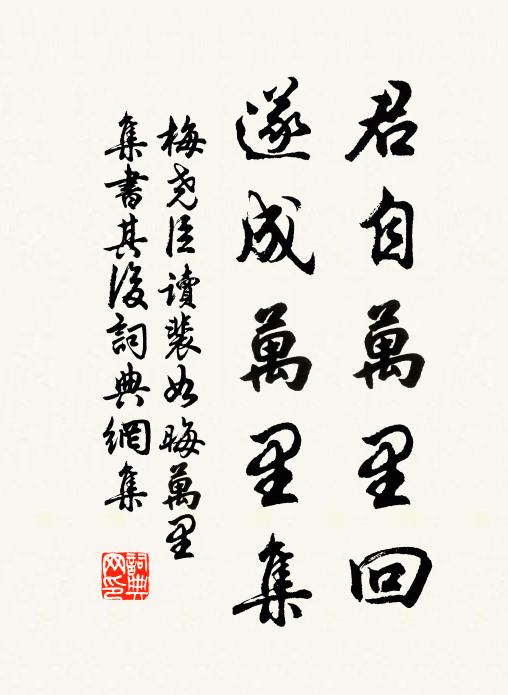 君自萬里回
遂成萬里集
梅堯臣讀裴如晦萬里
集書其後詞典網集
詞典網印